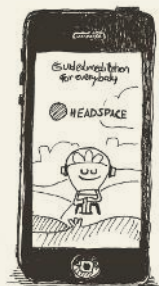 Guided meditation
for everybody
HEADSPACE